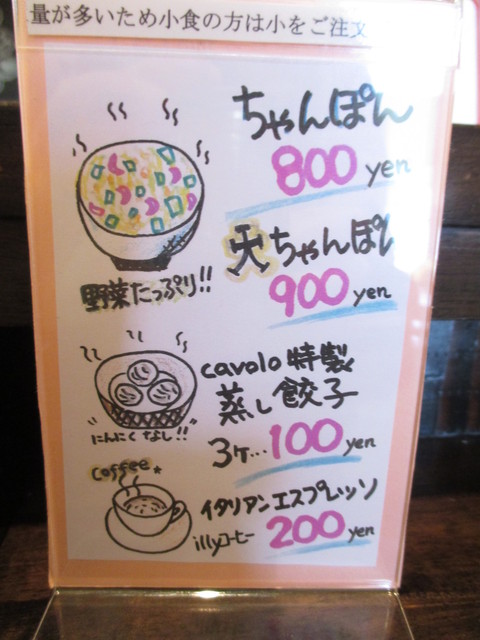 量が多いため小食の方は小をご注文
ちゃんぽん
800 yen
大ちゃんぽん
900 yen
野菜たっぷり!!
cavolo特製
蒸し餃子
にんにくなし!!
3ケ…100 yen
coffee
イタリアンエスプレッソ
illyコーヒー 200 yen